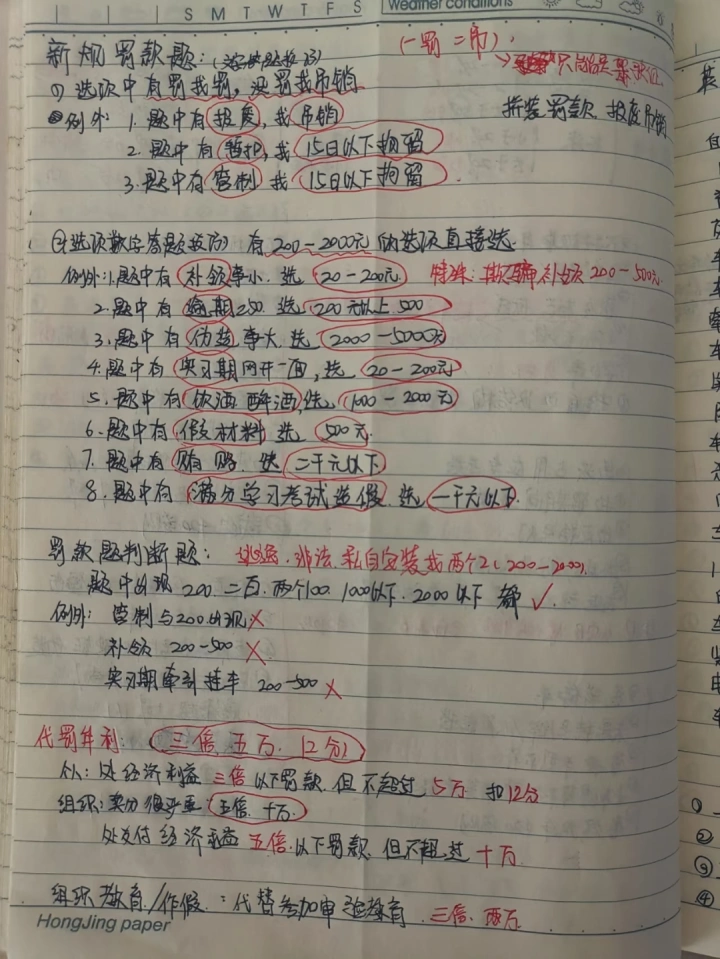 S M T W T F S
Weather conditions
新规罚款题: (一罚二吊).
(1) 选项中有罚找罚, 没罚找吊销 只
例外: 1. 题中有报废, 找吊销 拼装罚款, 报废吊销
2. 题中有暂扣, 找 15日以下拘留
3. 题中有管制 找 15日以下拘留.
(2) 选项数字答题技巧 有 200-2000元 的选项直接选.
例外: 1. 题中有 补领 事小. 选 20-200元. 特殊: 欺骗补领 200-500元.
2. 题中有 逾期 选 200元以上 500
3. 题中有 伪造 事大. 选 2000-5000元
4. 题中有 实习期 网开一面, 选 20-200元.
5. 题中有 饮酒 醉酒, 选 1000-2000元
6. 题中有 假材料 选 500元.
7. 题中有 贿赂. 选 二千元以下
8. 题中有 满分学习考试造假. 选 一千元以下.
罚款题判断题: 逃逸. 非法. 私自安装找两个2 (200-2000).
题中出现 200. 二百. 两个100. 1000以下. 2000以下 都 ✓.
例外: 管制与200出现 ×
补领 200-500 ×
实习期牵引挂车 200-500 ×
代罚牟利: 三倍. 五万. 12分
人: 处经济利益 三倍以下罚款. 但不超过 5万 扣12分
组织: 卖分很严重 五倍. 十万.
处支付经济利益 五倍以下罚款. 但不超过 十万
组织教育/作假: 代替参加审验教育. 三倍. 两万
HongJing paper
①
②
③
④